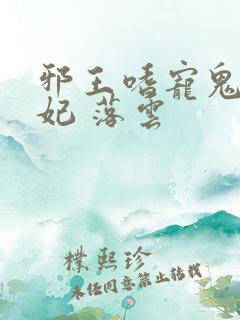 邪王嗜寵鬼
妃 落雲
樸熙珍
未经同意禁止转载